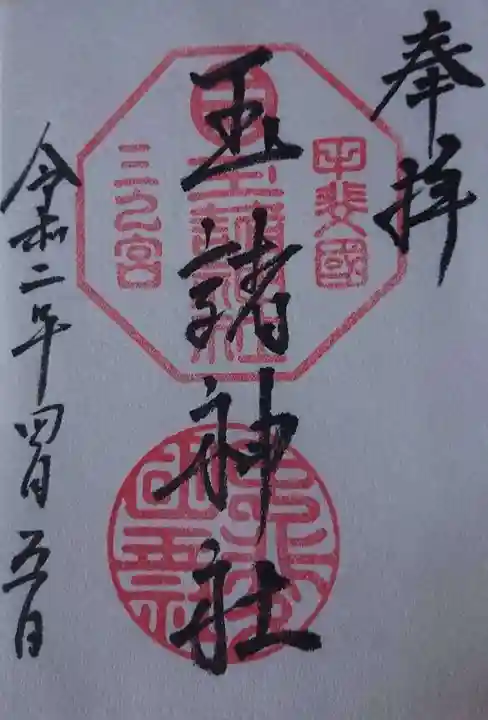 奉拝
甲斐國
玉諸神社
三之宮
令和二年四月五日